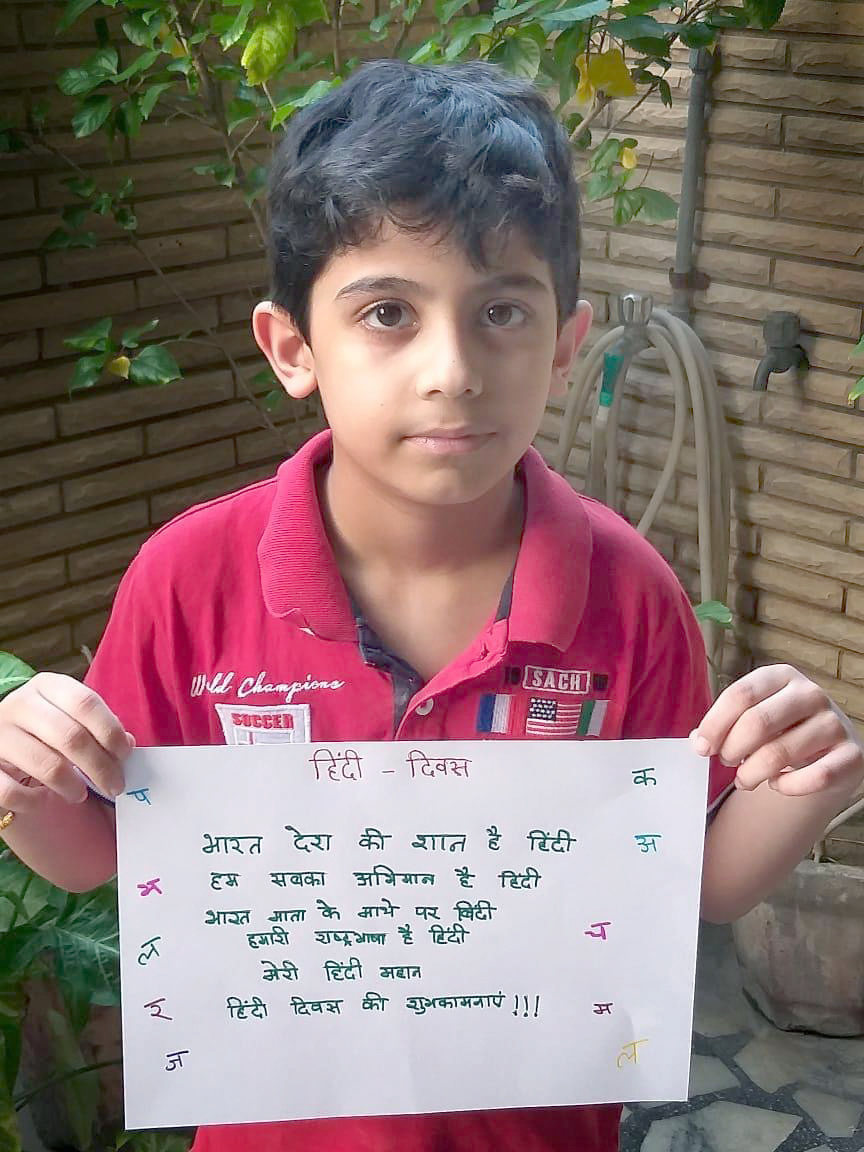 World Champions
SOCCER
SACH
हिंदी - दिवस
क
प
भारत देश की शान है हिंदी
अ
हम सबका अभिमान है हिंदी
भारत माता के माथे पर बिंदी
हमारी राष्ट्रभाषा है हिंदी
च
ल
मेरी हिंदी महान
हिंदी दिवस की शुभकामनाएं !!!
र
म
ज
ल